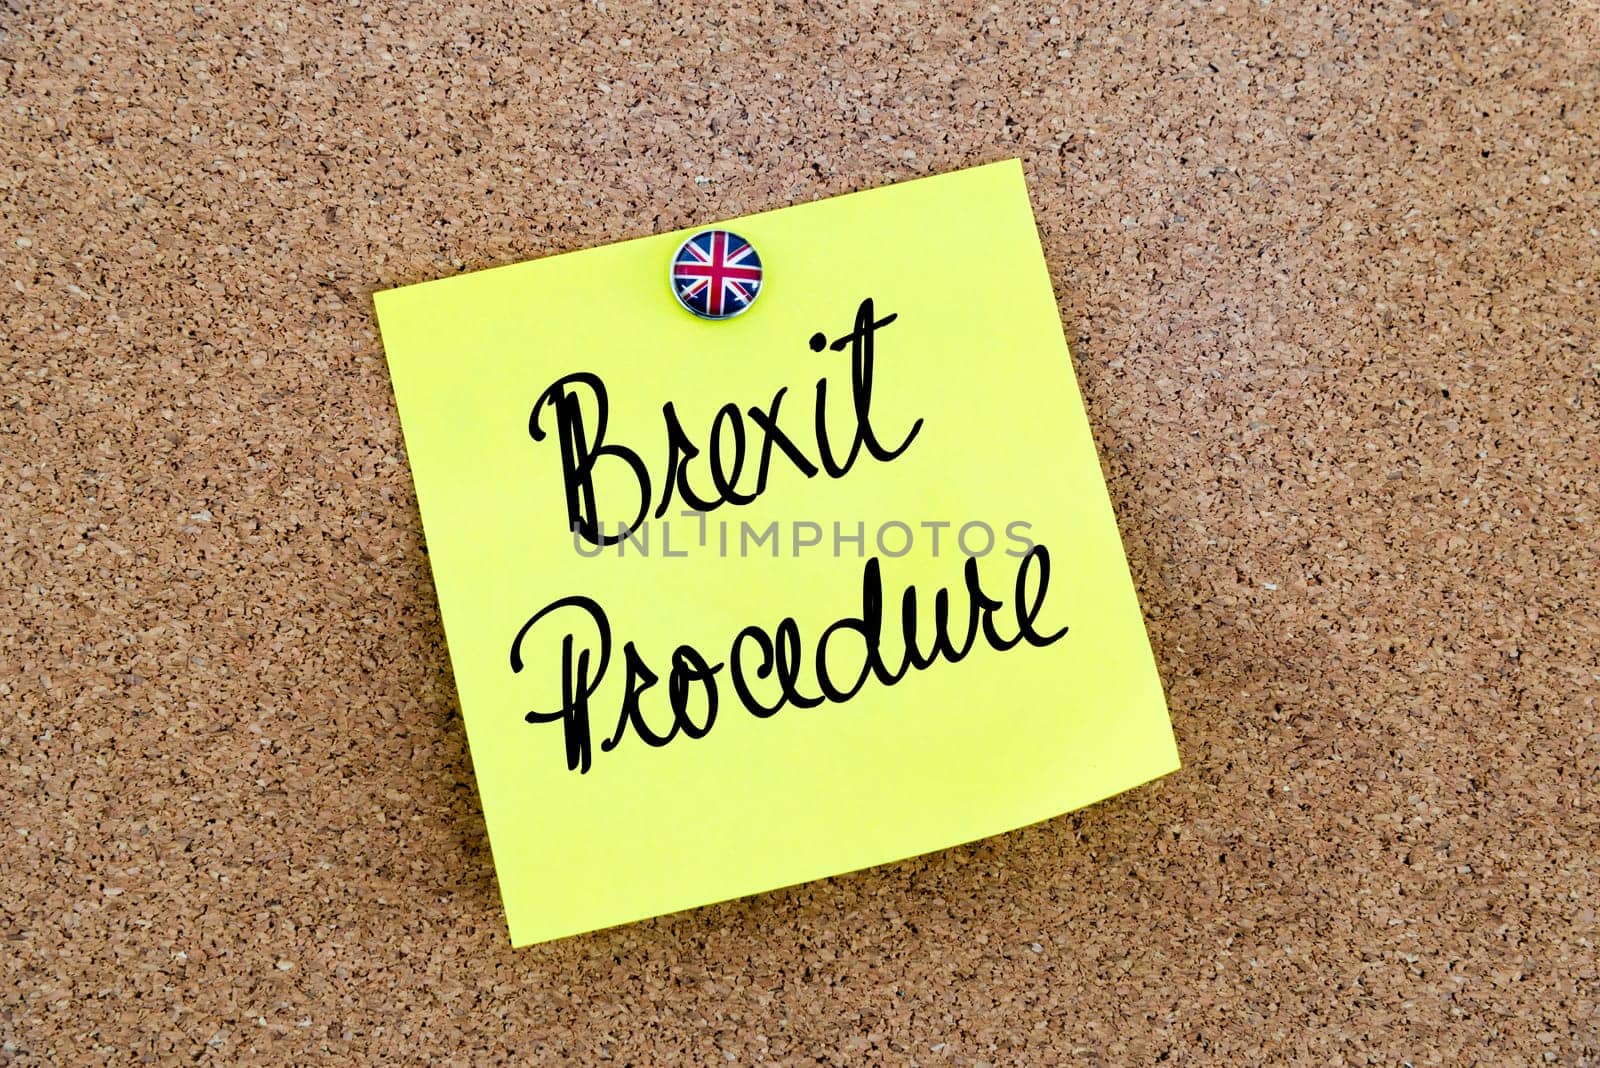 Brexit
UNLIMPHOTOS
Procedure